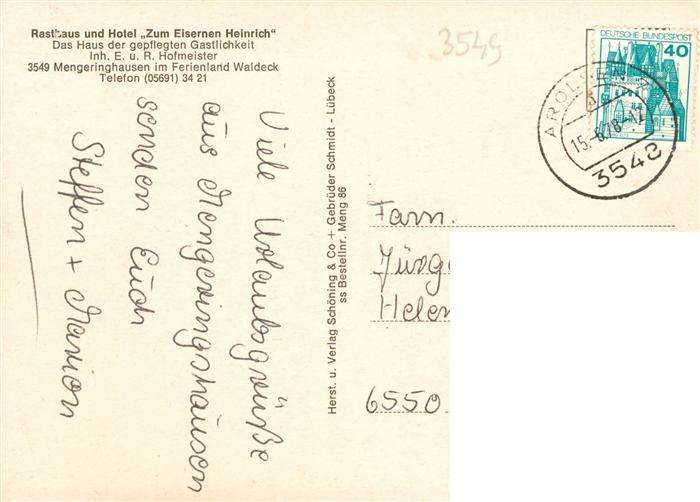 Rasthaus und Hotel „Zum Eisernen Heinrich“
Das Haus der gepflegten Gastlichkeit
Inh. E. u. R. Hofmeister
3549 Mengeringhausen im Ferienland Waldeck
Telefon (05691) 34 21
Viele Urlaubsgrüße
aus Mengeringshausen
senden Euch
Steffen + Marion
Herst. u. Verlag Schöning & Co + Gebrüder Schmidt - Lübeck
ss Bestellnr. Meng 86
3549
DEUTSCHE BUNDESPOST
40
AROLSEN
15.-6.78-12
3548
Fam.
Jürge
Helen
6550